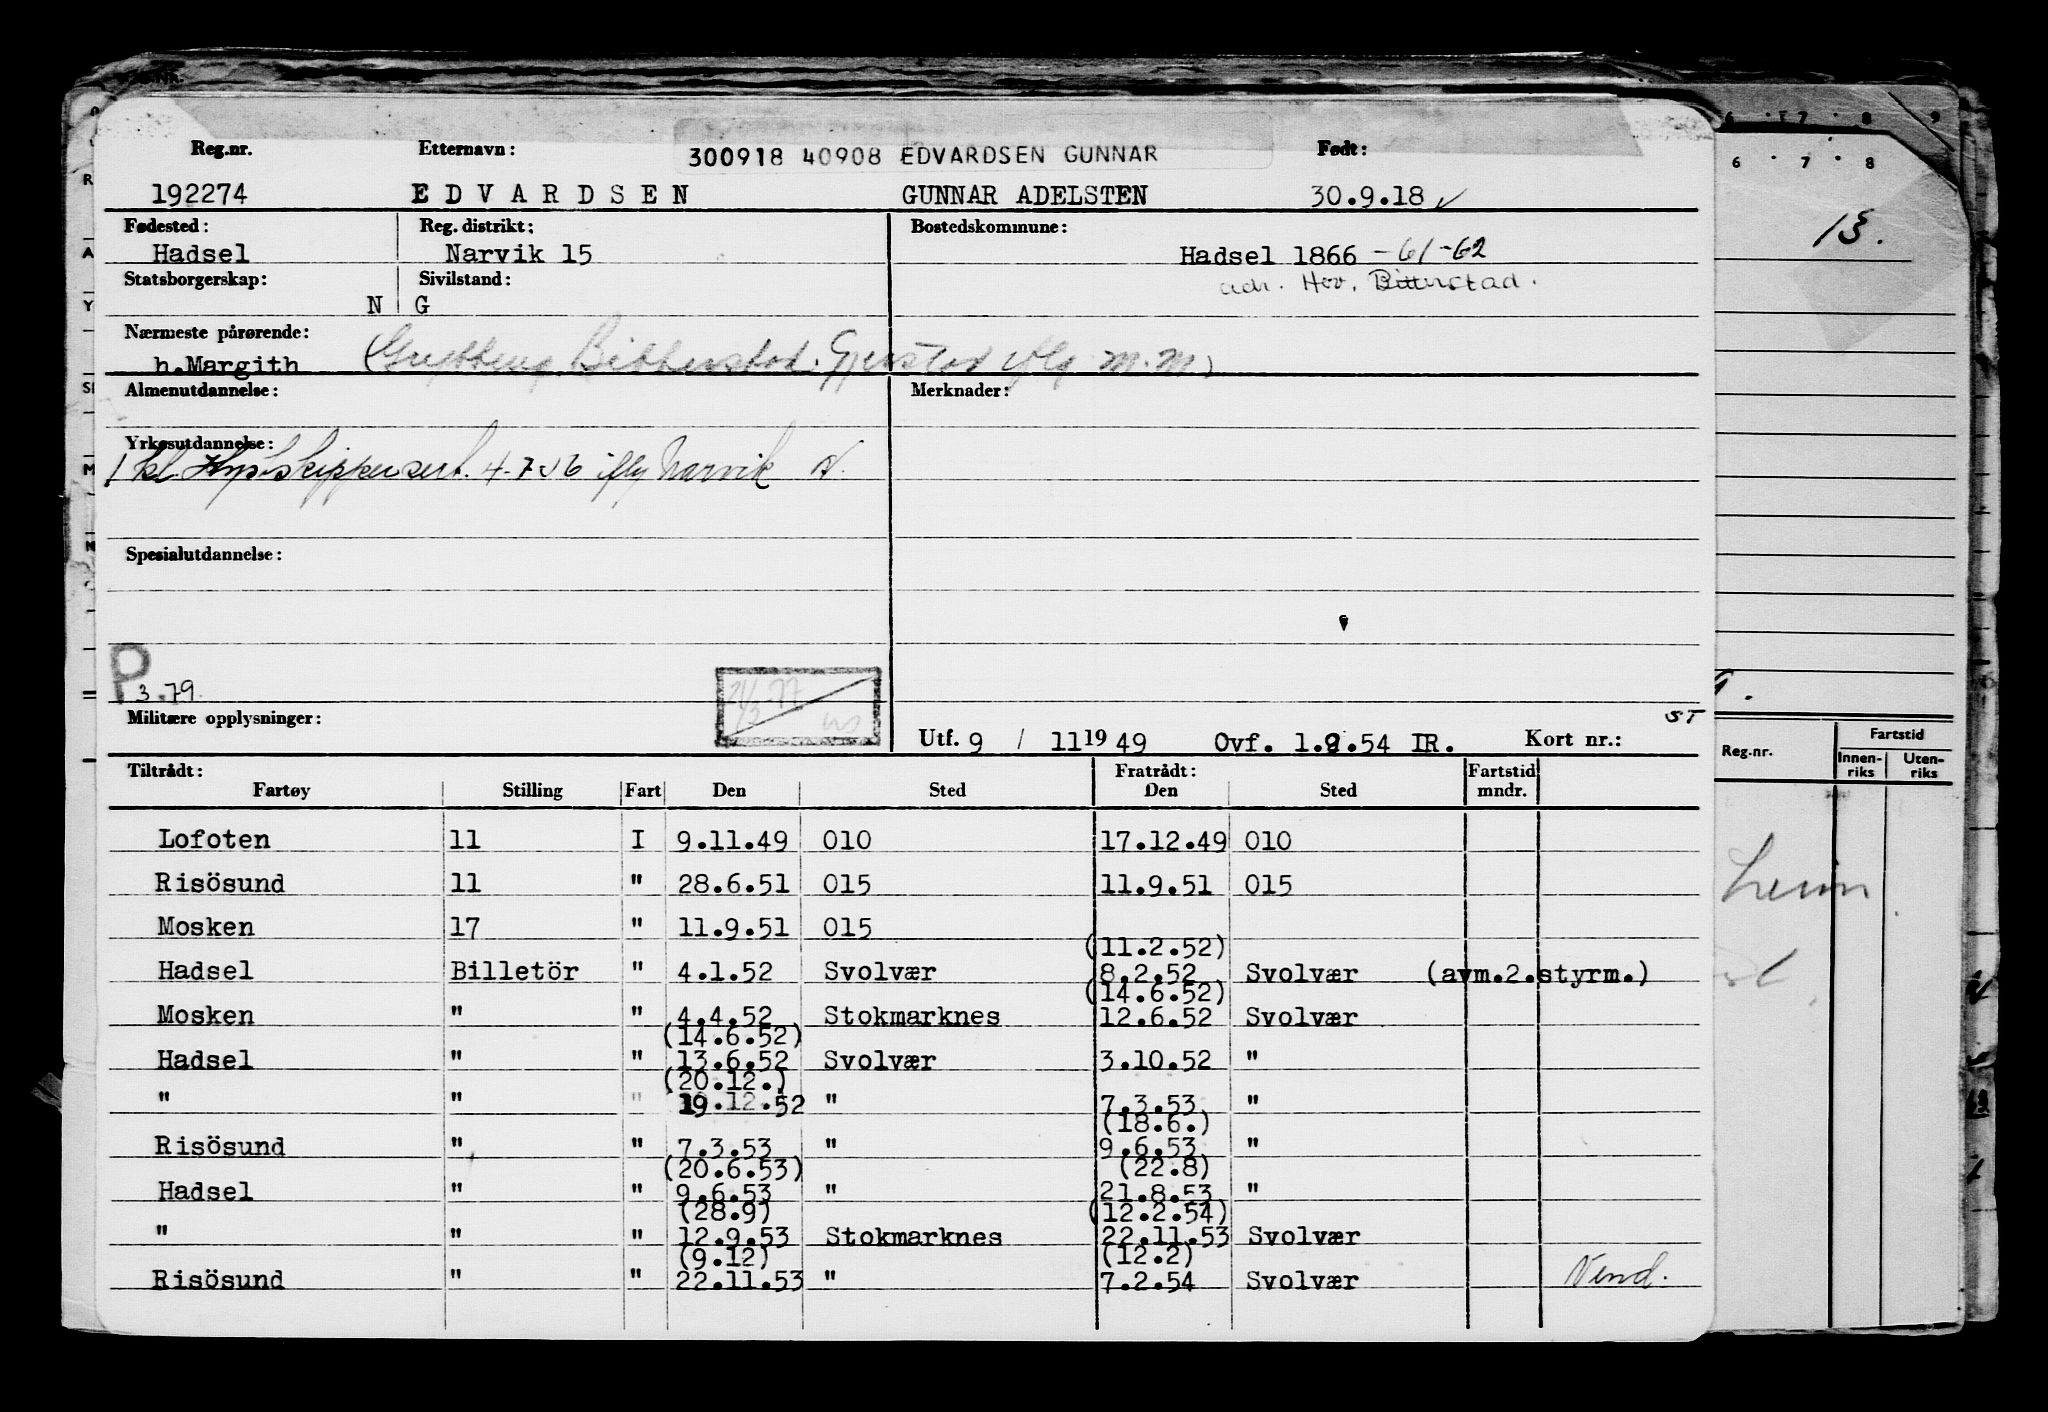 Reg.nr. Etternavn: 300918 40908 EDVARDSEN GUNNAR Født:
192274 EDVARDSEN GUNNAR ADELSTEN 30.9.18
Fødested: Reg. distrikt: Bostedskommune:
Hadsel Narvik 15 Hadsel 1866 -61-62
Statsborgerskap: Sivilstand: adr. Hov, Bitterstad.
N G
Nærmeste pårørende:
h.Margith
Almenutdannelse: Merknader:
Yrkesutdannelse:
1 kl. Kystskippersert. 4-7-56 Narvik
Spesialutdannelse:
P 3.79.
Militære opplysninger: ST
Utf. 9 / 11 19 49 Ovf. .54 IR. Kort nr.:
Tiltrådt: Fratrådt: Fartstid
Fartøy Stilling Fart Den Sted Den Sted mndr.
Lofoten 11 I 9.11.49 010 17.12.49 010
Risösund 11 " 28.6.51 015 11.9.51 015
Mosken 17 " 11.9.51 015
(11.2.52)
Hadsel Billetör " 4.1.52 Svolvær 8.2.52 Svolvær (avm.2.styrm.)
(14.6.52)
Mosken " " 4.4.52 Stokmarknes 12.6.52 Svolvær
(14.6.52)
Hadsel " " 13.6.52 Svolvær 3.10.52 "
(20.12.)
" " " 19.12.52 " 7.3.53 "
(18.6.)
Risösund " " 7.3.53 " 9.6.53 "
(20.6.53) (22.8)
Hadsel " " 9.6.53 " 21.8.53 "
(28.9) (12.2.54)
" " " 12.9.53 Stokmarknes 22.11.53 Svolvær
(9.12) (12.2)
Risösund " " 22.11.53 " 7.2.54 Svolvær Vend.
6 7 8 9
6 7 8
13.
Reg.nr. Fartstid
Innen-riks Uten-riks